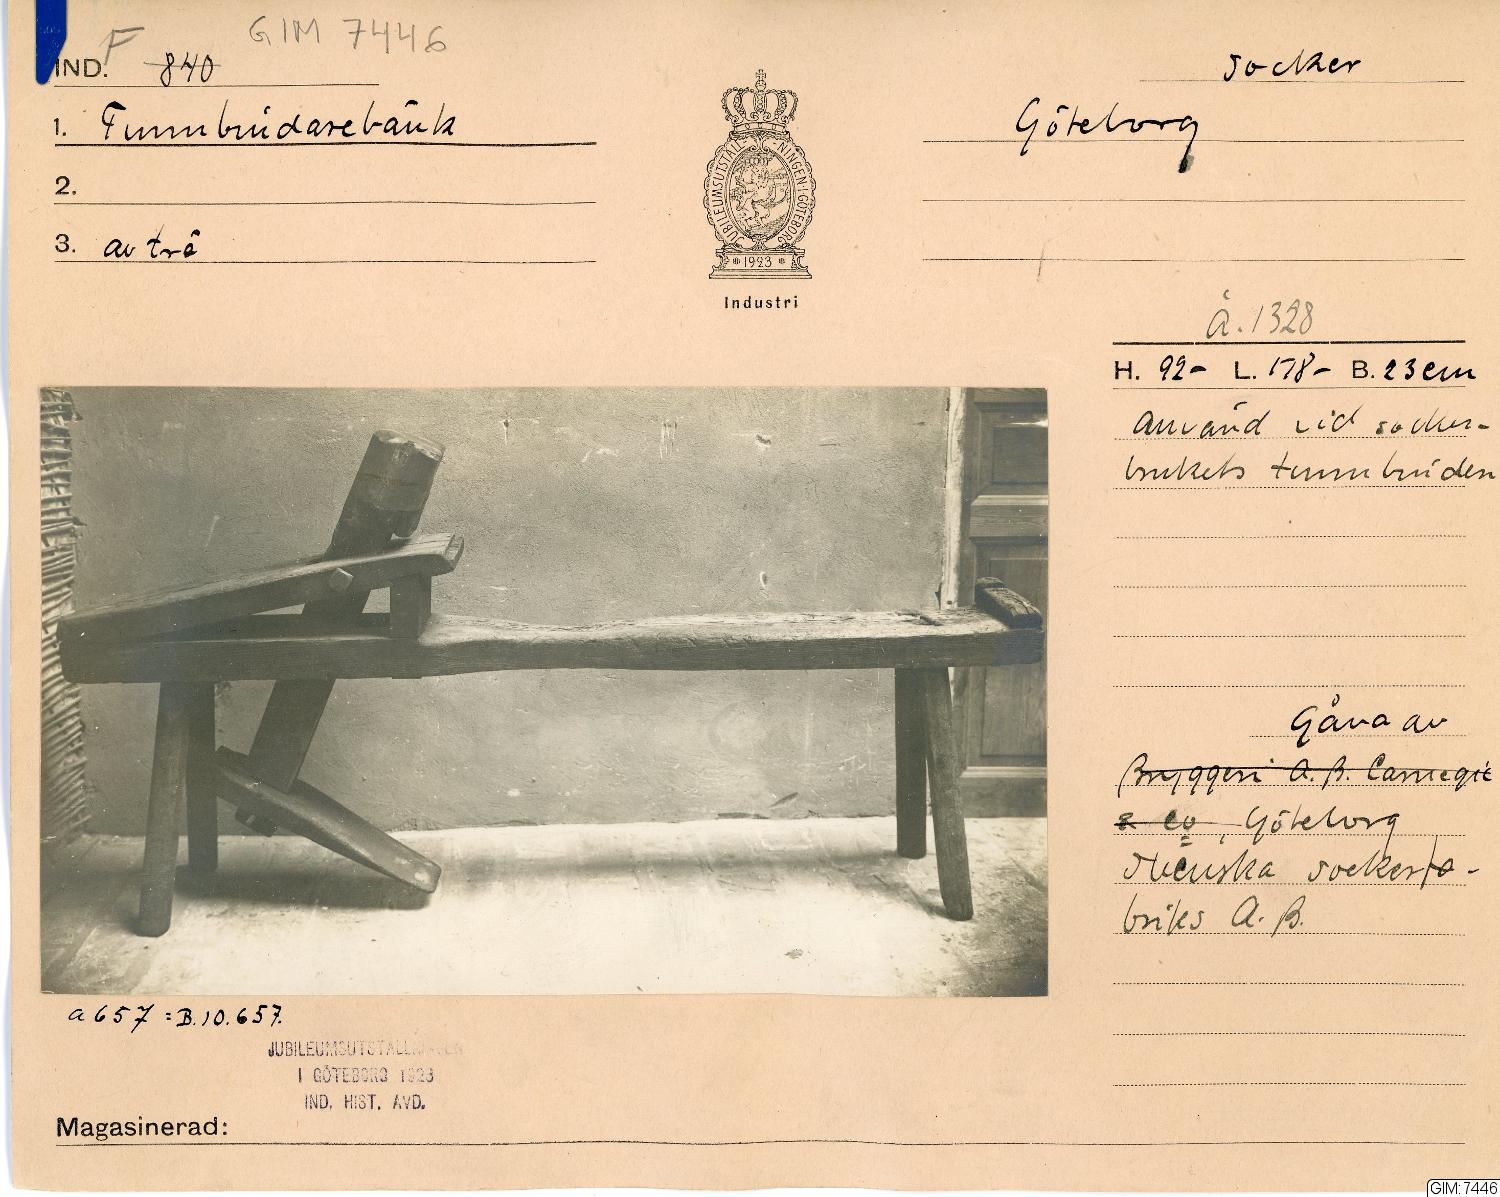 F GIM 7446
IND. 840
socker
1. Tunnbindarebänk
Göteborg
2.
3. av trä
JUBILEUMSUTSTÄLLNINGEN I GÖTEBORG
1923
Industri
Å. 1328
H. 92- L. 178- B. 23 cm
Använd vid socker-
brukets tunnbinderi
Gåva av
Bryggeri A.B. Carnegie
& Co, Göteborg
Svenska sockerfa-
briks A.B.
a 657 = B.10.657.
JUBILEUMSUTSTÄLLNINGEN
I GÖTEBORG 1923
IND. HIST. AVD.
Magasinerad:
GIM:7446